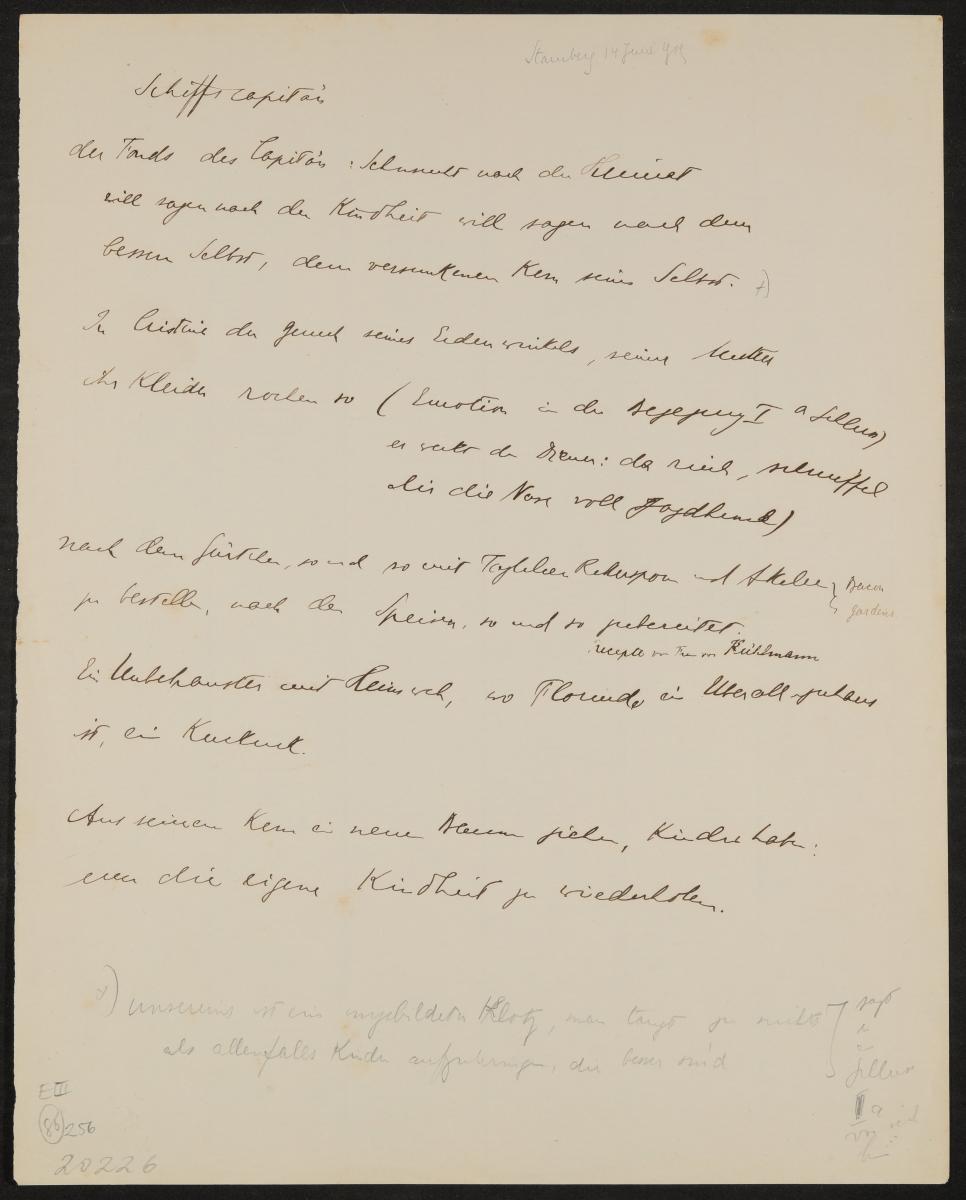 Starnberg 14 Juni
Schiffscapitän
der Fonds des Capitän: Sehnsucht nach der Heimat
will sagen nach der Kindheit will sagen nach dem
bessern Selbst, dem versunkenen Kern seines Selbst. +)
In Cristine der Geruch seines Erdenwinkels, seiner Mutter
ihr Kleider rochen so (Emotion in der Begegnung I a
er weckt den Diener: da riech, schnüffel
dir die Nase voll
nach dem Gärtchen, so und so mit und Akelei
zu bestellen, nach den Speisen, so und so zubereitet.
Bacon
gardens
recepte von Frau von Kühlmann
Ein Unbehauster mit Heimweh, wo Florindo ein Überall-zuhaus
ist, ein Kuckuck.
Aus seinem Kern ein neuen Baum ziehen, Kinder haben:
um die eigene Kindheit zu wiederholen.
+) unsereins ist ein ungebildeter Klotz, man taugt zu nichts
als allenfalls Kinder aufzubringen, die besser sind
sagt
er
II a
E III
86 256
20226